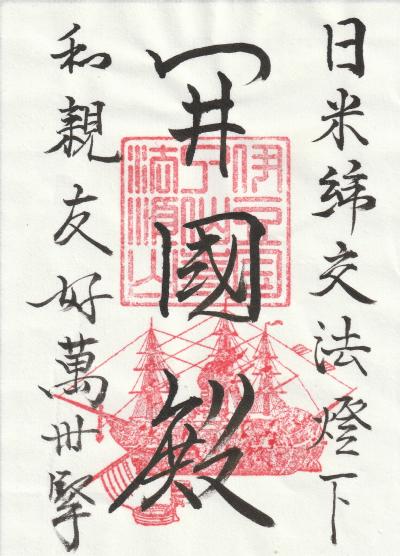 日米締交法燈下
開國殿
和親友好萬世堅
伊豆國
了仙寺
法順山